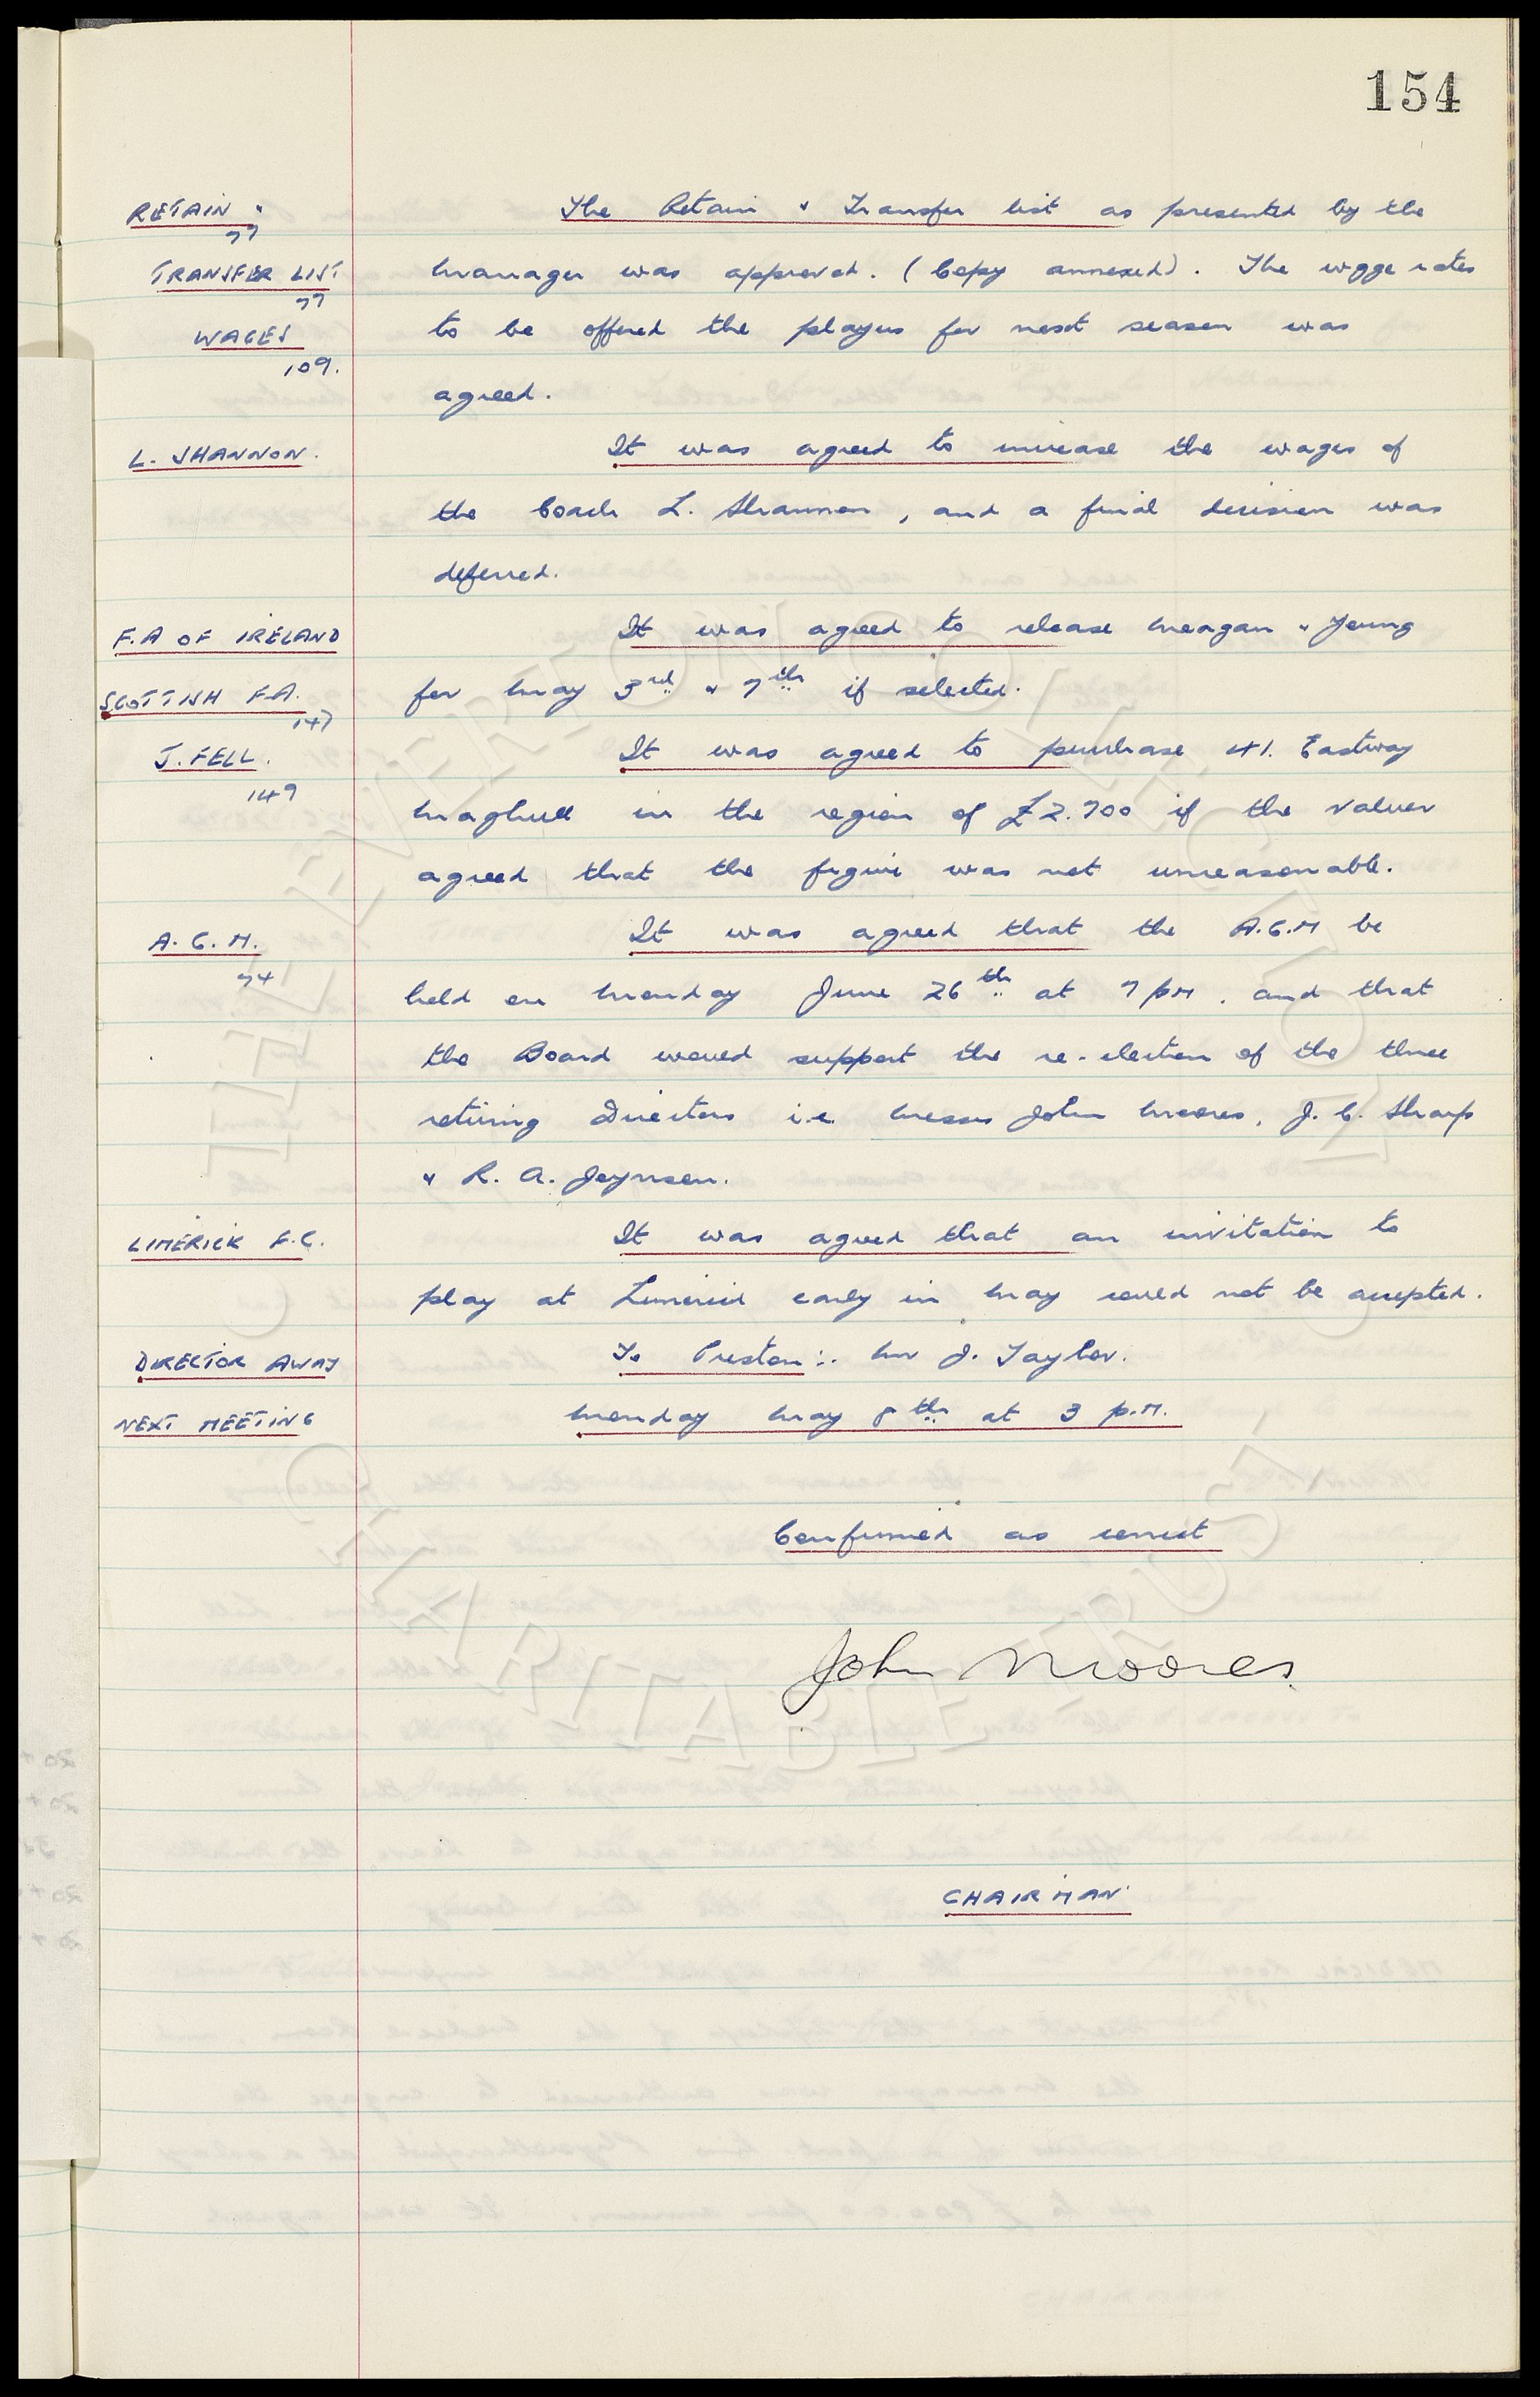 154
RETAIN &
77
The Retain & Transfer list as presented by the
TRANSFER LIST
77
manager was approved. (Copy annexed). The wage rates
WAGES
109.
to be offered the players for next season was
agreed.
L. SHANNON.
It was agreed to increase the wages of
the Coach L. Shannon, and a final decision was
deferred.
F.A OF IRELAND
It was agreed to release Meagan & Young
SCOTTISH F.A.
147
for May 3rd & 7th if selected.
J. FELL.
149
It was agreed to purchase 41. Eastway
Maghull in the region of £2.700 if the valuer
agreed that the figure was not unreasonable.
A.G.M.
74
It was agreed that the A.G.M be
held on Monday June 26th at 7 pm. and that
the Board would support the re-election of the three
retiring Directors i.e. Messrs John Moores, J. C. Sharp
& R. A. Joynson.
LIMERICK F.C.
It was agreed that an invitation to
play at Limerick early in May could not be accepted.
DIRECTOR AWAY
To Preston:. Mr J. Taylor.
NEXT MEETING
Monday May 8th at 3 p.m.
Confirmed as correct
John Moores.
CHAIRMAN